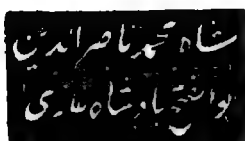 شاه محمد ناصر الدین
بوالفتح بادشاه غازی